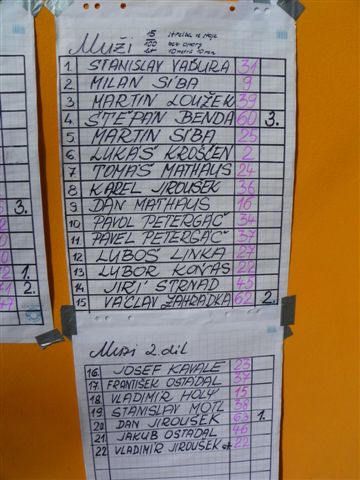 Muži
1. STANISLAV VAĎURA 31
2. MILAN SÍBA 9
3. MARTIN LOUŽEK 39
4. ŠTĚPÁN BENDA 60 3.
5 MARTIN SÍBA 25
6 LUKÁŠ KROŠČEN 2
7 TOMÁŠ MATHAUS 24
8 KAREL JIROUŠEK 36
9 DAN MATHAUS 16
10 PAVOL PETERGÁČ 34
11 PAVEL PETERGÁČ 37
12 LUBOŠ LINKA 27
13 LUBOR KOŇAS 22
14 JIŘÍ STRNAD 45
15 VÁCLAV ZAHRÁDKA 62 2.
3.
1.
2.
Muži 2. díl
16. JOSEF KAVALE 23
17. FRANTIŠEK OSTÁDAL 37
18 VLADIMÍR HOLÝ 15
19 STANISLAV MOTL 38
20 DAN JIROUŠEK 63 1.
21 JAKUB OSTÁDAL 46
22 VLADIMÍR JIROUŠEK st. 22